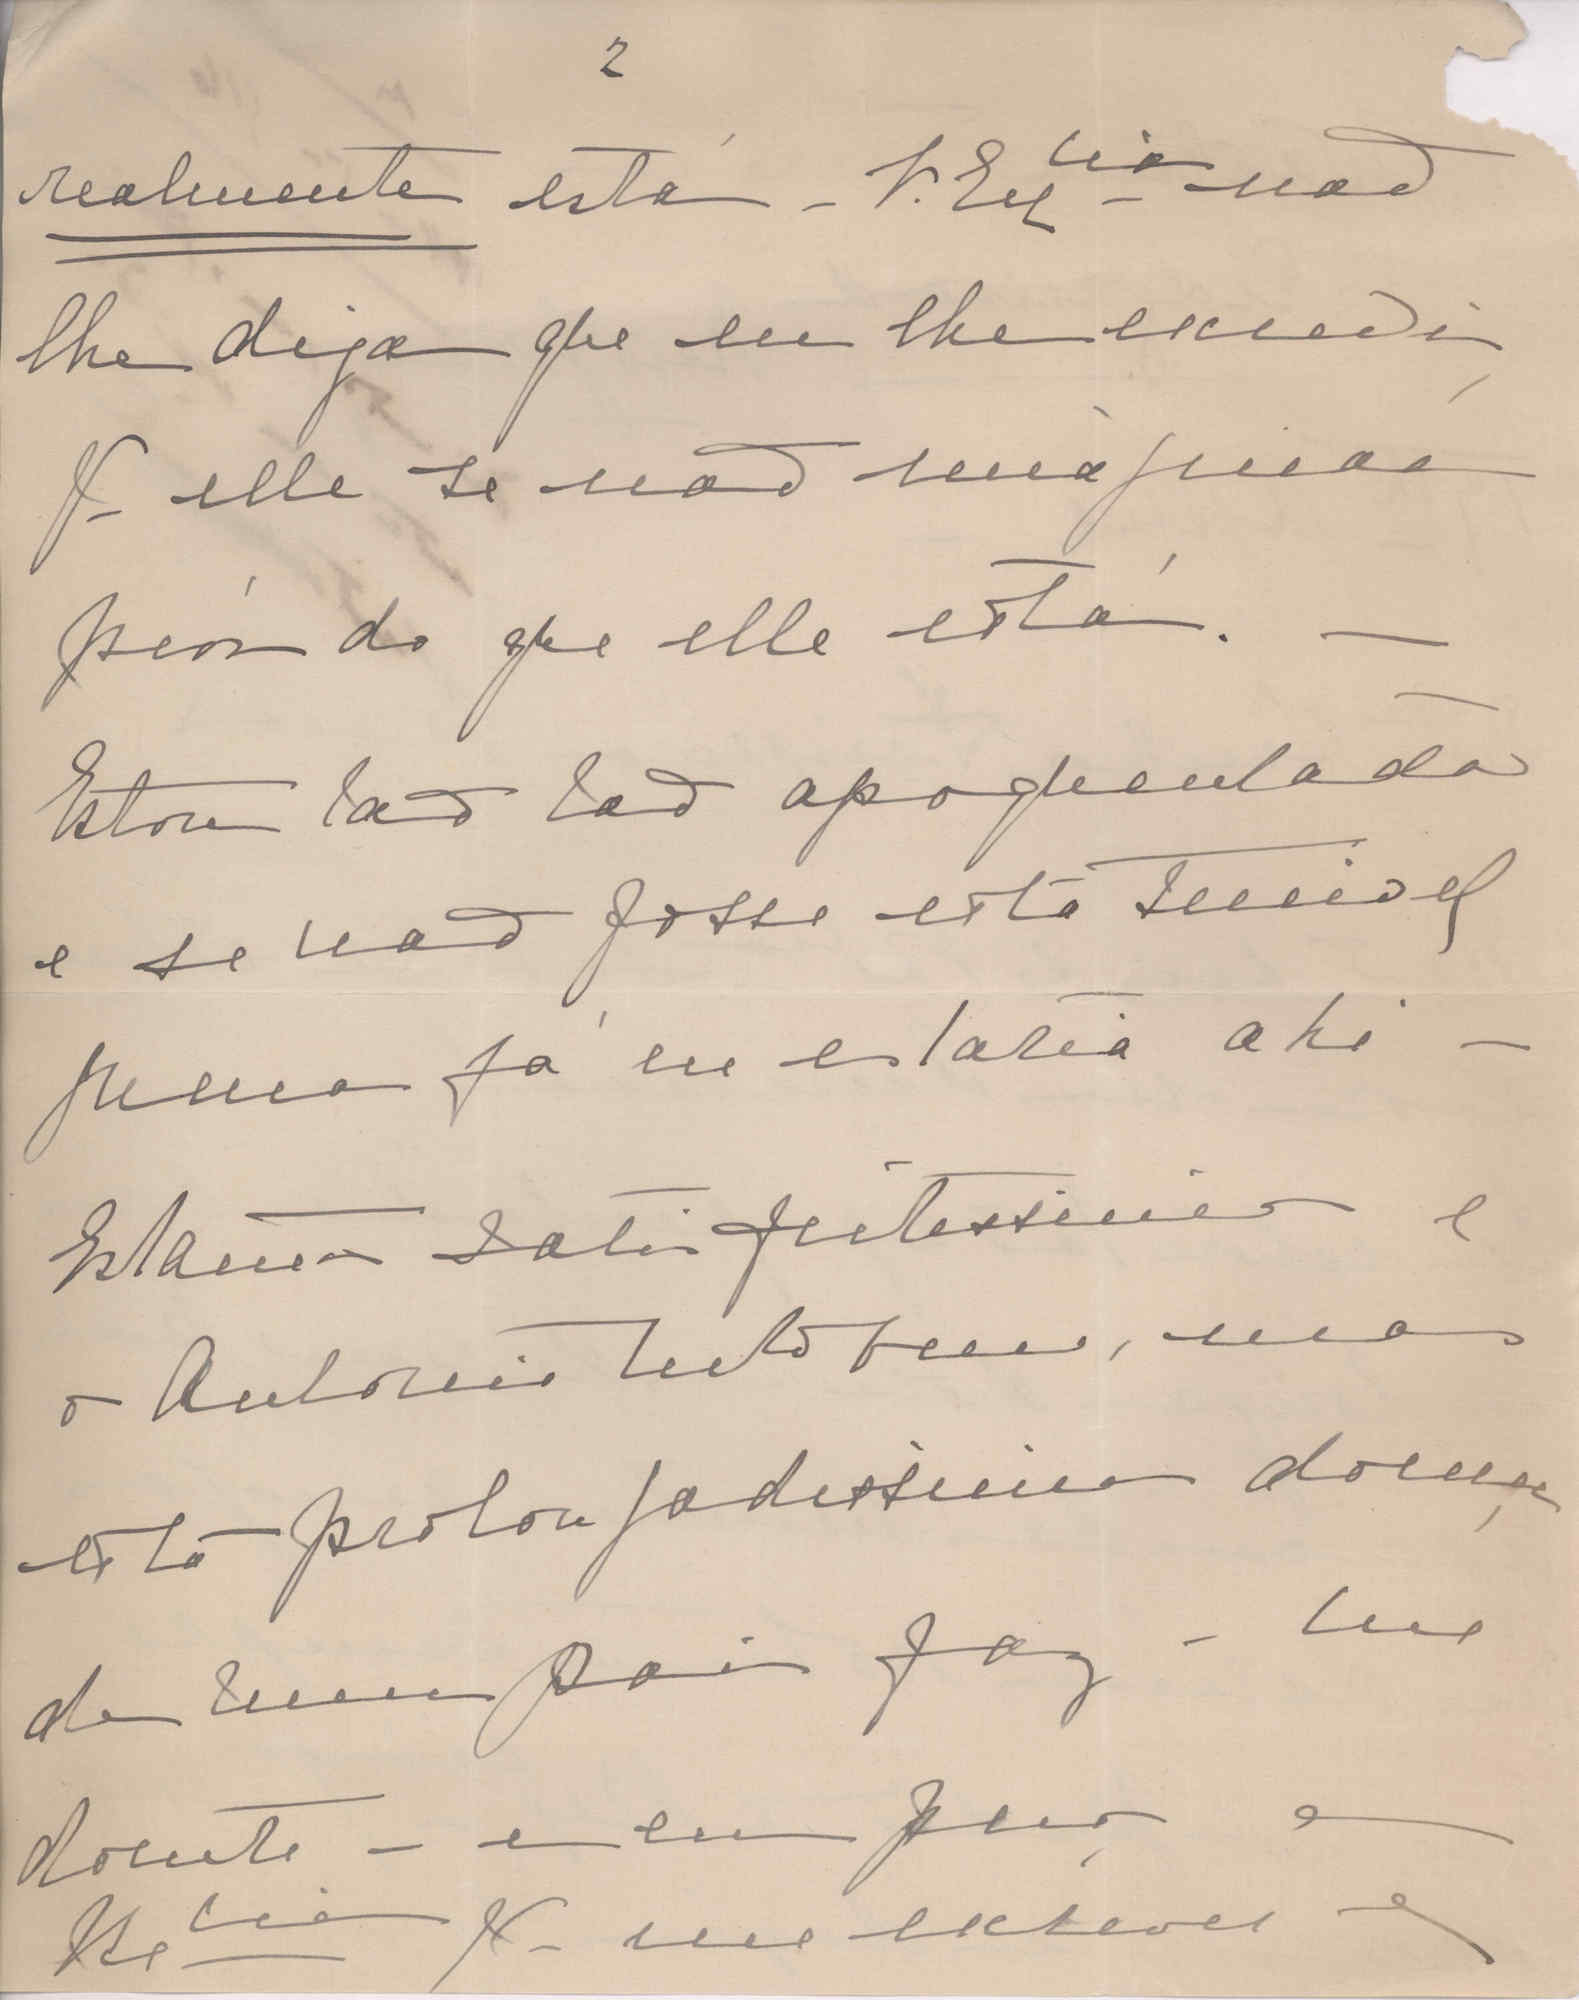 2
realmente está - V. Exᶜⁱᵃ - não
lhe diga que eu lhe escrevi,
p.ª elle se não imaginar
peór do que elle está. —
Estou tão tão apoquentada
e se não fosse esta terrivel
grena já eu estaria ahi -
Estamos satisfeitissimos e
o Antonio muito bem, mas
esta prolongadissima doença
de meu Pai faz - me
doente - e eu peço a
V. Exᶜⁱᵃ p.ª me escrever e